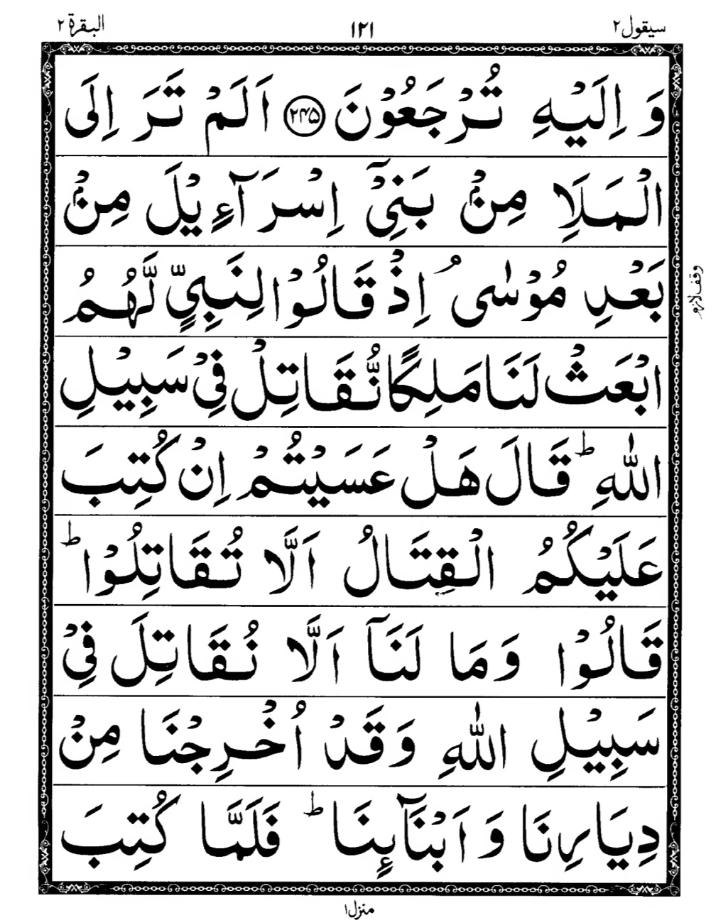 سيقول٢ ١٢١ البقرة ٢
وَ اِلَيْهِ تُرْجَعُوْنَ ﴿۲۴۵﴾ اَلَمْ تَرَ اِلَى
الْمَلَاِ مِنْۢ بَنِيْۤ اِسْرَآءِيْلَ مِنْۢ
بَعْدِ مُوْسٰى ۘ اِذْ قَالُوْا لِنَبِيٍّ لَّهُمُ
ابْعَثْ لَنَا مَلِكًا نُّقَاتِلْ فِيْ سَبِيْلِ
اللّٰهِ ؕ قَالَ هَلْ عَسَيْتُمْ اِنْ كُتِبَ
عَلَيْكُمُ الْقِتَالُ اَلَّا تُقَاتِلُوْا ؕ
قَالُوْا وَمَا لَنَاۤ اَلَّا نُقَاتِلَ فِيْ
سَبِيْلِ اللّٰهِ وَقَدْ اُخْرِجْنَا مِنْ
دِيَارِنَا وَ اَبْنَآئِنَا ؕ فَلَمَّا كُتِبَ
وقف لازم
منزل١